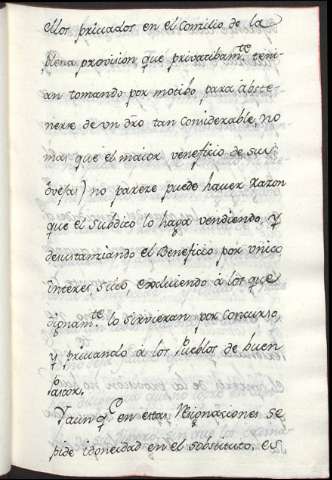 ellos priuados en el Comilio de la
plena provision, que privatibam.te teni-
an tomando por motibo para abste-
nerse de vn dro tan Considerable, no
mas que el maior veneficio de sus
Ovejas) no pareze puede hauer razon
que el subdito lo haga vendiendo, y
el Beneficio por vnico
interes suio, excluiendo à los que
dignam.te lo siruieran por Concurso,
y priuando à los Pueblos de buen
Pastor.
Y aunq.e en estas Resignaciones se
pide idoneidad en el sostituto, es